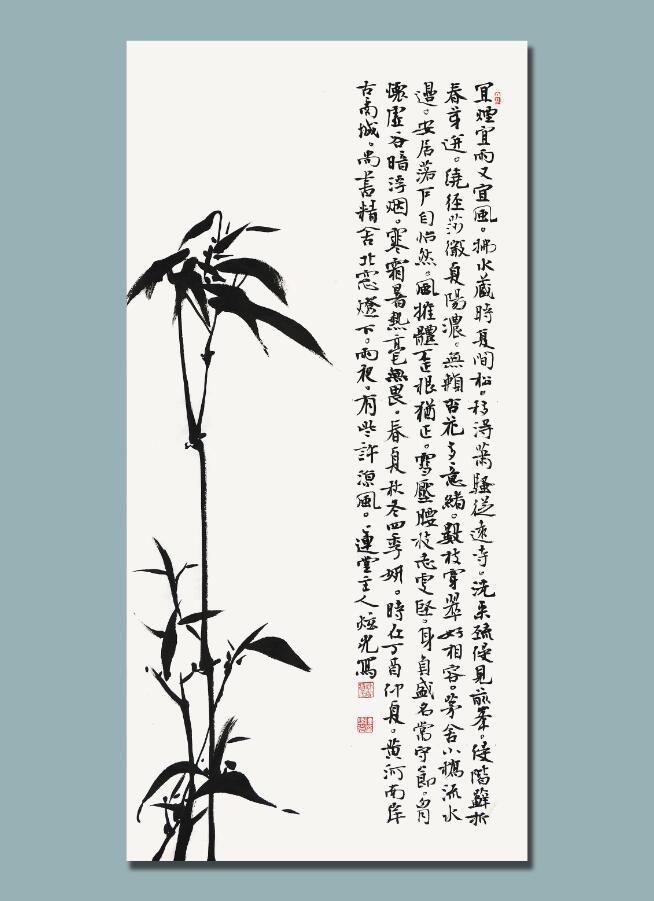 宜煙宜雨又宜風。拂水藏時夏間松。移得蕭騷從遠寺。洗來疏侵見前峯。侵階蘚折
春芽迸。繞徑莎微夏陽濃。無賴杏花多意緒。數枝穿翠好相容。茅舍小橋流水
邊。安居落戶自怡然。風摧體歪根猶正。雪壓腰枝志更堅。身負盛名常守節。胸
懷虛谷暗浮烟。寒霜暑熱毫無畏。春夏秋冬四季妍。時在丁酉仰夏。黄河南岸
古南城。尚書精舍北窓燈下。雨夜。有些許涼風。蓮堂主人炫光寫